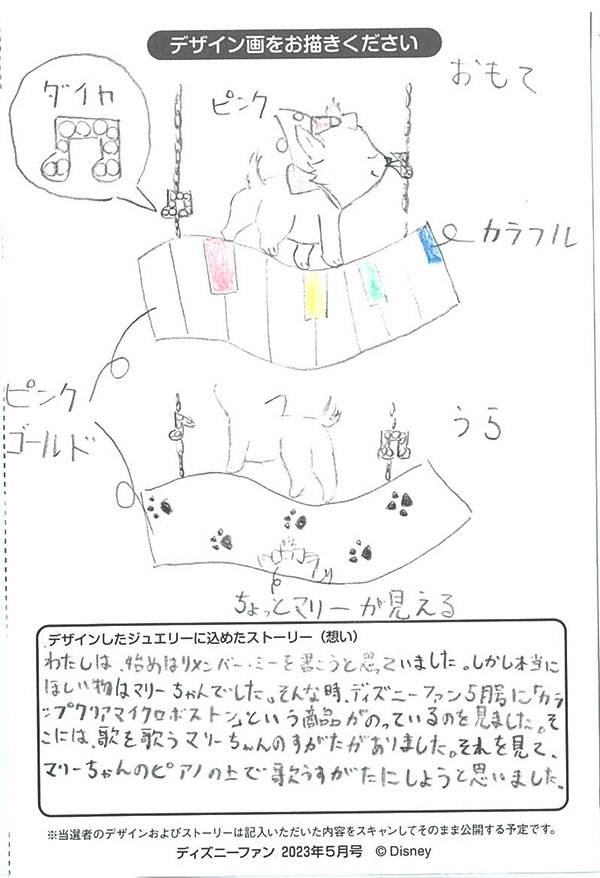 デザイン画をお描きください
おもて
ダイヤ
ピンク
カラフル
ピンク
ゴールド
うら
ちょっとマリーが見える
デザインしたジュエリーに込めたストーリー（想い）
わたしは、始めはリメンバー・ミーを書こうと思っていました。しかし本当に
ほしい物はマリーちゃんでした。そんな時、ディズニーファン5月号に「カラ
ップクリアマイクロボストン」という商品がのっているのを見ました。そ
こには、歌を歌うマリーちゃんのすがたがありました。それを見て、
マリーちゃんのピアノの上で歌うすがたにしようと思いました。
※当選者のデザインおよびストーリーは記入いただいた内容をスキャンしてそのまま公開する予定です。
ディズニーファン 2023年5月号 © Disney